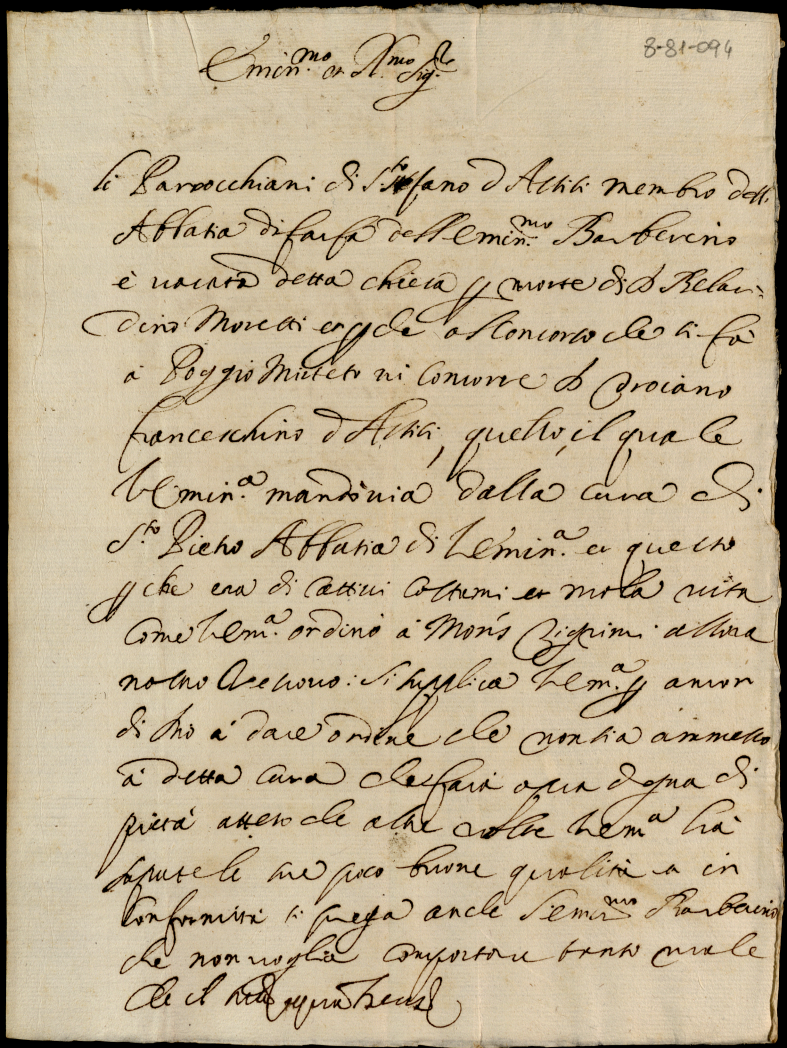 8-81-094
Emin.mo et R.mo Sig.re
li Parrocchiani di S.to Stefano d'Assisi membro dell
Abbatia di farfa dell'Emin.mo Barberino
è vacata detta chiesa p morte di D
dino Moretti et p che al Concorso che si fà
à Poggio Mirteto vi Concorre D Troiano
franceschino d, quello, il quale
V Emin.a mandò via dalla cura di
S.to Pietro Abbatia di V Emin.a et questo
p che era di cattivi Costumi et mala vita
Come V Em.a ordinò à Mons allora
nostro Vescovo: si supplica V Em.a p amor
di Dio à dare ordine che non sia ammesso
à detta Cura che farà opra degna di
pietà atteso che altre volte V Em.a hà
sapute le sue poco buone qualità et in
conformità si prega anche l'Emin.mo Barberino
che non voglia comportare tanto male
che il tutto